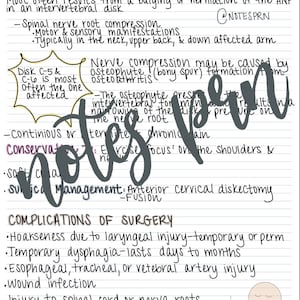 Most often from a bulging or herniation of the
in an intervertebral disk
@NOTESPRN
-Spinal nerve root compression
•Motor & sensory manifestations
•Typically in the neck, upper back, & down affected arm
Disk C-5 &
C-6 is most
often the one
affected
Nerve compression may be caused by
osteophyte (bone spur) formation from
osteoarthritis
-The osteophyte presses on the
intervertebral foramen
narrowing of the
the nerve root
-Continious or chronic pain
Conservative Exercise focus on the shoulders &
•Soft
•Surgical Management: Anterior cervical diskectomy
-Fusion
notes prn
COMPLICATIONS OF SURGERY
•Hoarseness due to laryngeal injury-temporary or perm
•Temporary dysphagia-lasts days to months
•Esophageal, tracheal, or vetebral artery injury
•Wound infection
•Injury to spinal cord or nerve roots